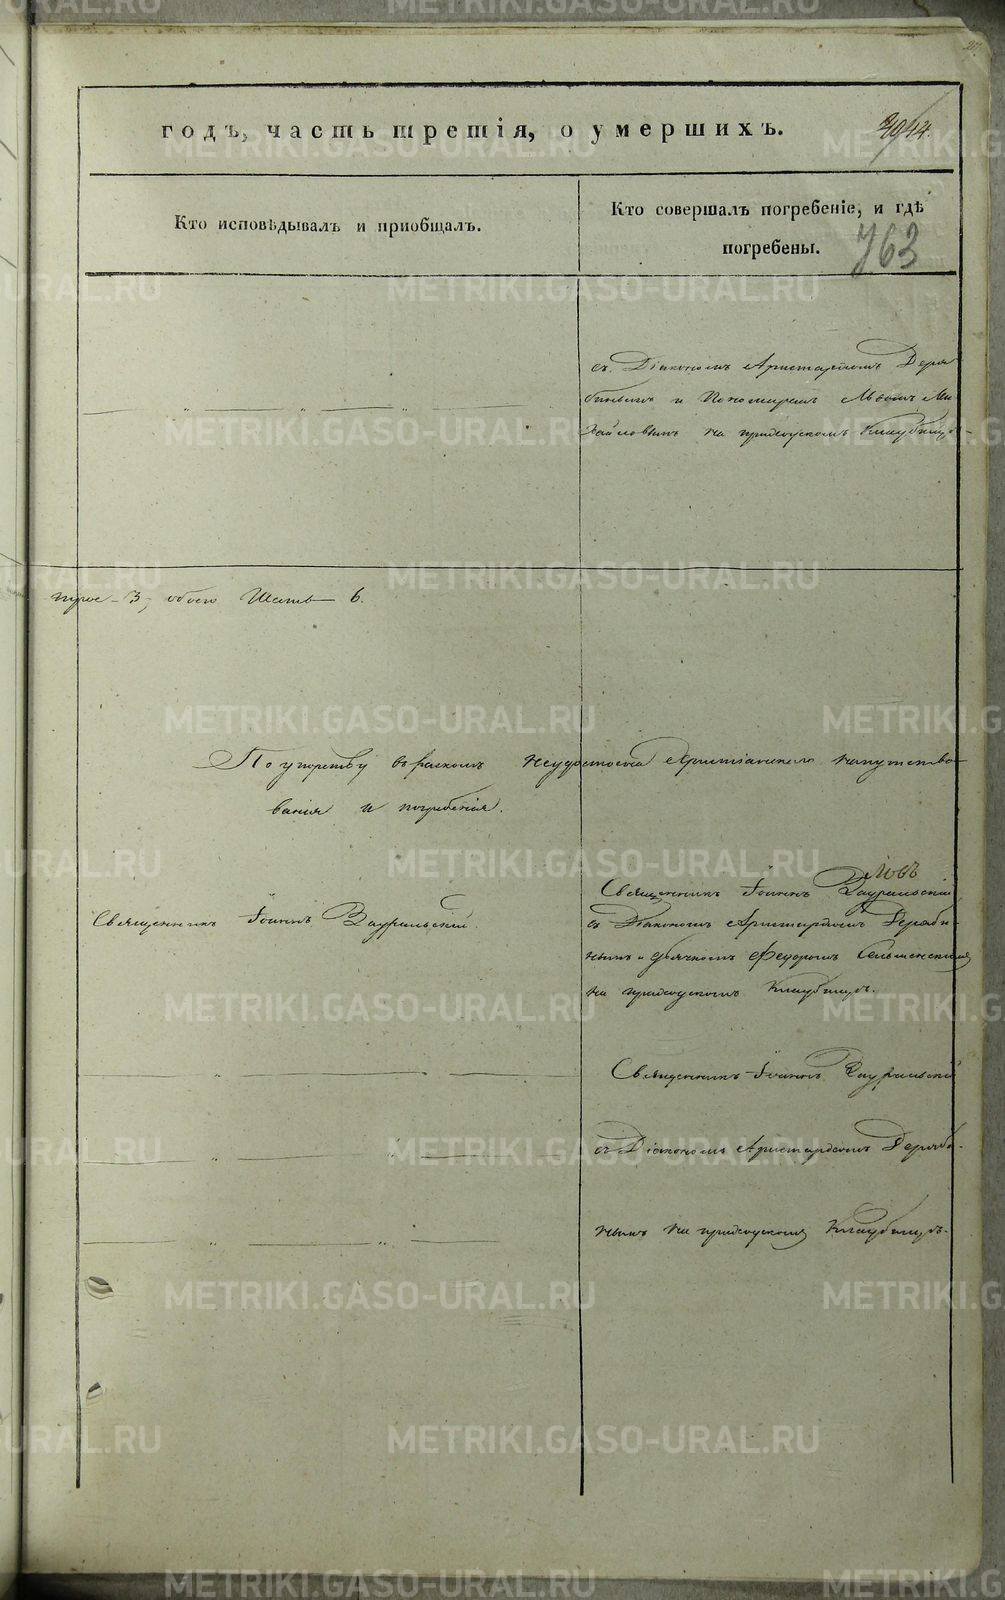 годъ, часть третія, о умершихъ.
Кто исповѣдывалъ и пріобщалъ.
Кто совершалъ погребеніе, и гдѣ
погребены.
763
съ Діакономъ Аристархомъ Деря
бинымъ и Пономаремъ Львомъ Ми
хайловымъ на приходскомъ кладбищѣ
3, обоего Шесть 6.
По упорству въ расколѣ неудостоены Христіанскаго напутство
ванія и погребенія.
Священникъ Іоаннъ Зауральскій.
Священникъ Іоаннъ Зауральскій
съ Діакономъ Аристархомъ Деряби
нымъ и дьячкомъ Федоромъ
на приходскомъ Кладбищѣ.
Священникъ Іоаннъ Зауральскій
съ Діакономъ Аристархомъ Деряби
нымъ на приходскомъ Кладбищѣ.
METRIKI.GASO-URAL.RU